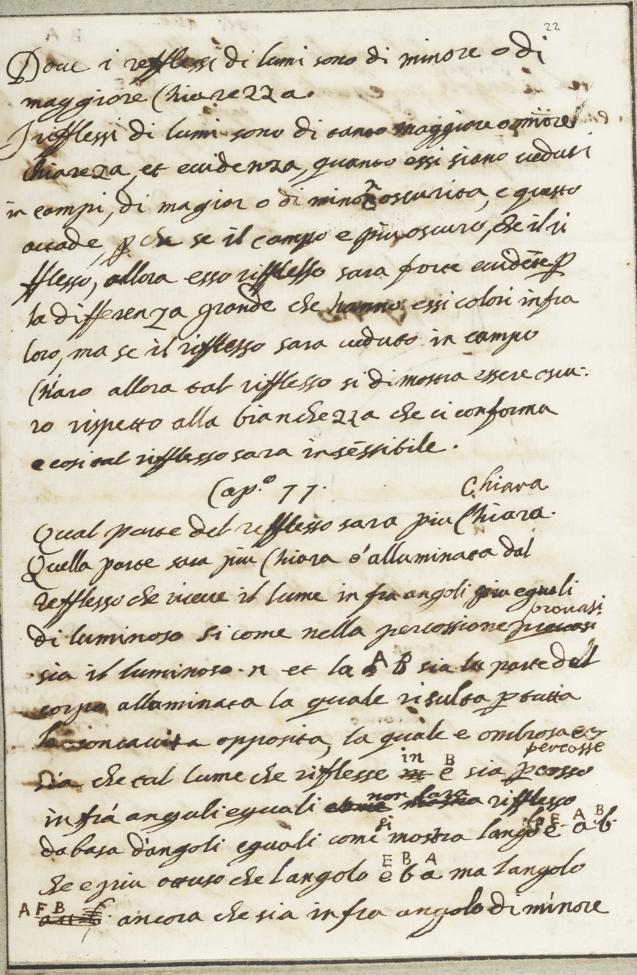 22
Doue i refflessi di lumi sono di minore o di
maggiore Chiarezza.
I rifflessi di lumi sono di tanto maggiore o minore
Chiareza, et euidenza, quanto essi siano ueduti
in campi, di magior o di minor oscurita, e questo
accade, p che se il campo e piu oscuro, che il ri
fflesso, allora esso rifflesso sara forte euidēte p
la differenza grande che hanno essi colori infra
loro, ma se il rifflesso sara ueduto in campo
Chiaro allora tal rifflesso si dimostra essere oscu:
ro rispetto alla bianchezza che ci conforma
e cosi tal rifflesso sara insēssibile.
Cap.º 77. Chiara
Qual parte del refflesso sara piu Chiara.
Quella parte sara piu Chiara é alluminata dal
refflesso che riceue il lume infra angoli piu eguali
prouasi
di luminoso si come nella percossione
sia il luminoso .n et la A B sia la parte del
corpo alluminata la quale risulta p tutta
la concauita opposita, la quale e ombrosa et
in B percosse
sia che tal lume che rifflesse é sia
non sara
infrá anguli eguali rifflesso
si E A B
da basa d'angoli eguali come mostra langolo é a b
E B A
che e piu ottuso che langolo e b a ma langolo
A F B
ancora che sia infra angolo di minore